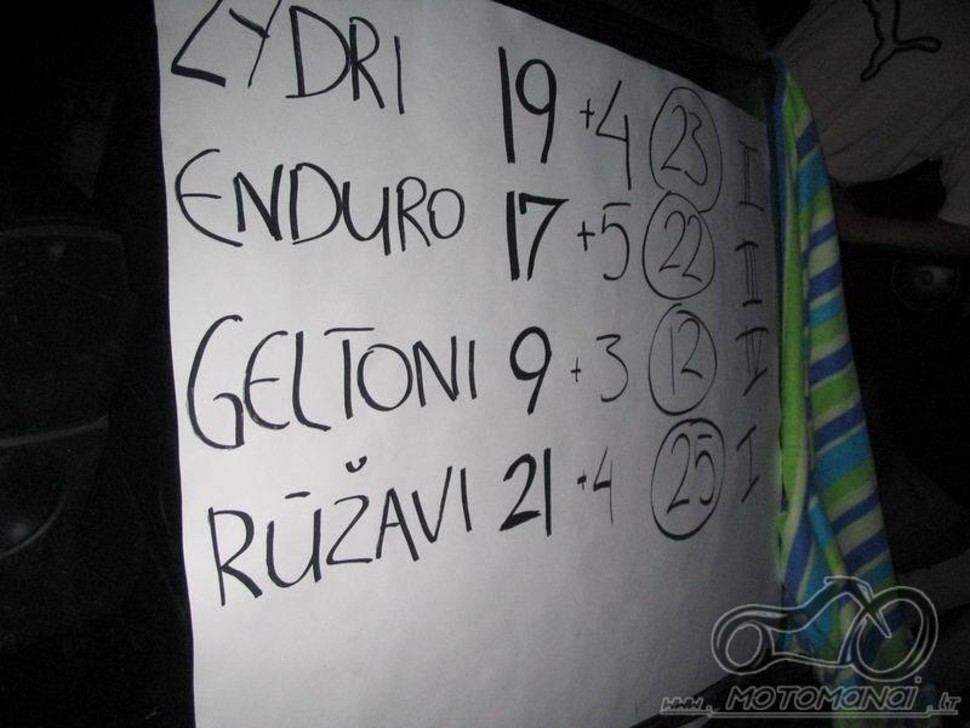 ŽYDRI 19 +4 23 II
ENDURO 17 +5 22 III
GELTONI 9 +3 12 IV
RŪŽAVI 21 +4 25 I
www.MOTOMANAI.LT